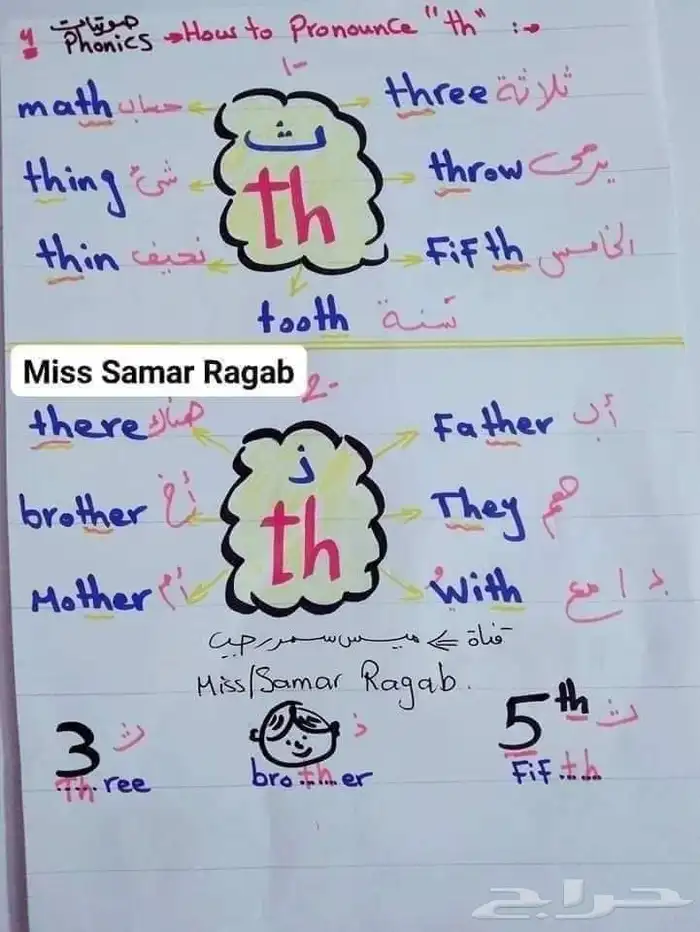 صوتيات
Phonics → How to Pronounce "th" :→
1-
math حساب
three ثلاثة
ث
th
thing شئ
throw يرمى
thin نحيف
FiFth الخامس
tooth سنة
Miss Samar Ragab
2-
there هناك
Father أب
ذ
th
brother أخ
They هم
Mother أم
With مع
قناة ⇐ ميس سمر رجب
Miss/Samar Ragab.
3 ث
Three
ذ
brother
5th ث
FiF th
حراج